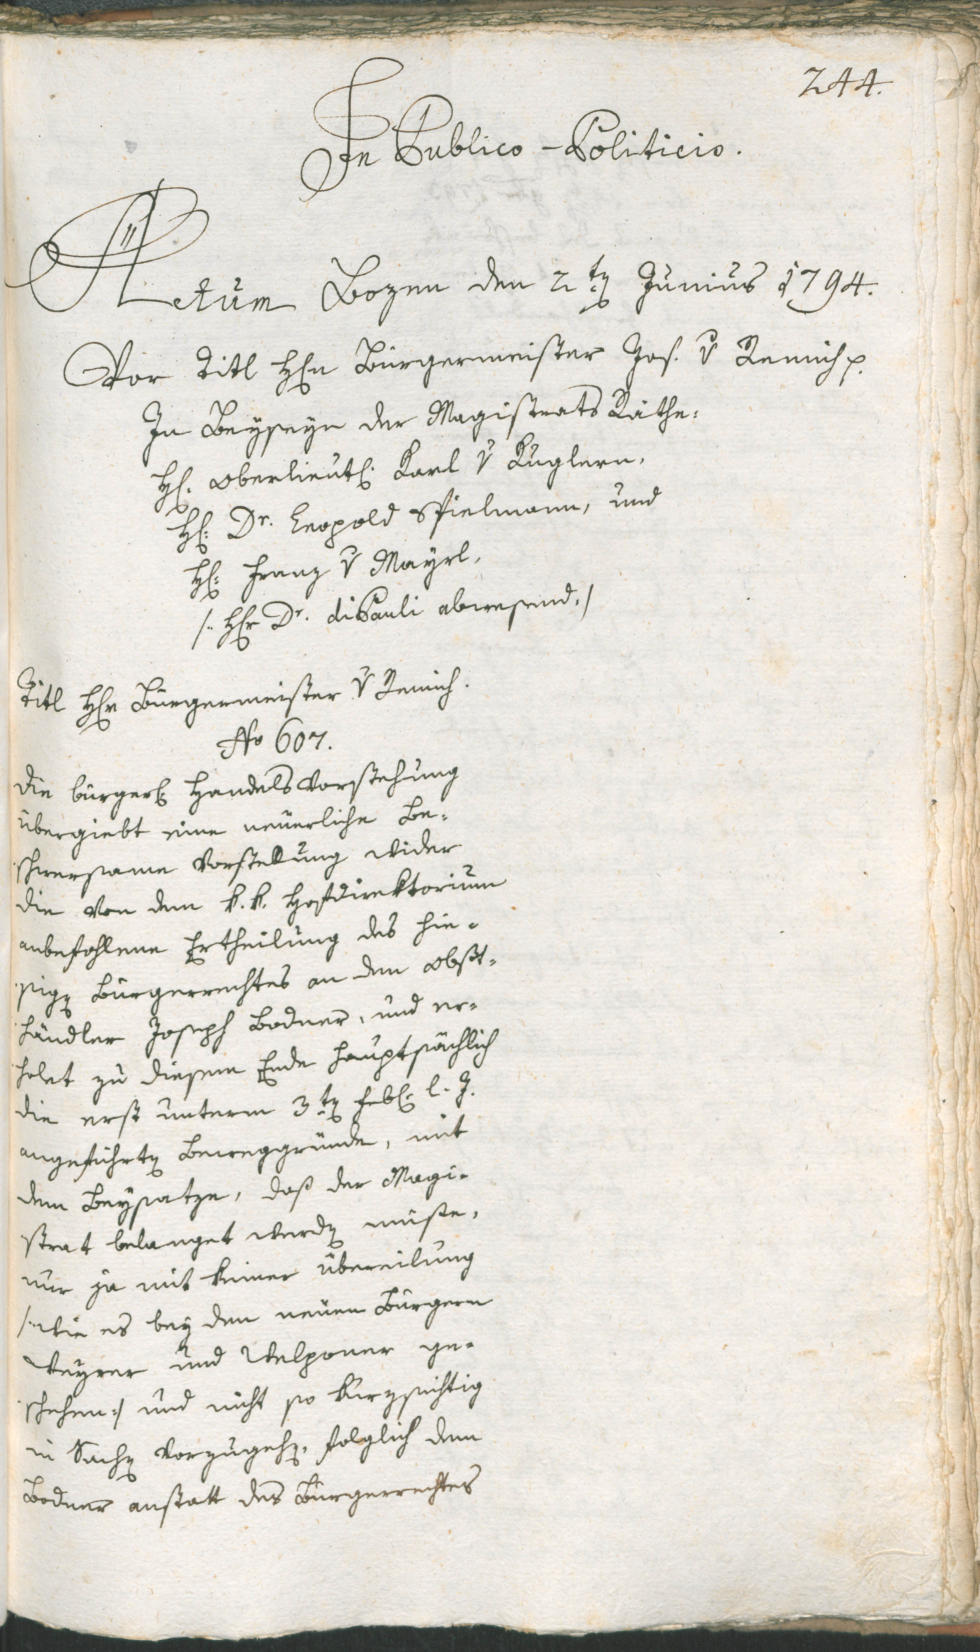 244.
In Publico-Politicis.
Actum Bozen den 2ten Junius 1794.
Vor Titl Hrn Bürgermeister Jos. v Remich p.
In Beyseyn der Magistrats Räthe:
H. Oberlieut. Karl v Kuglern,
H: Dr. Leopold Spielmann, und
H: Franz v Mayrl,
/: Hr Dr. di Pauli abwesend. :/
Titl Hr Bürgermeister v Remich.
No 607.
Die bürgerl. Handels Vorstehung
übergiebt eine neuerliche Be-
schwersame Vorstellung wider
die von dem k. k. Hofdirektorium
anbefohlene Ertheilung des hie-
sigen Bürgerrechtes an den Obst-
händler Joseph Bodner, und er-
holet zu diesem Ende hauptsächlich
die erst unterm 3ten Feb. l. J.
angeführten Beweggründe, mit
dem Beysatze, daß der Magi-
strat belanget werden müße,
nur ja mit keiner Übereilung
/: wie es bey den neuen Bürgern
Weyrer und Welponer ge-
schehen :/ und nicht so kurzsichtig
in Sachen vorzugehen, folglich dem
Bodner anstatt des Bürgerrechtes